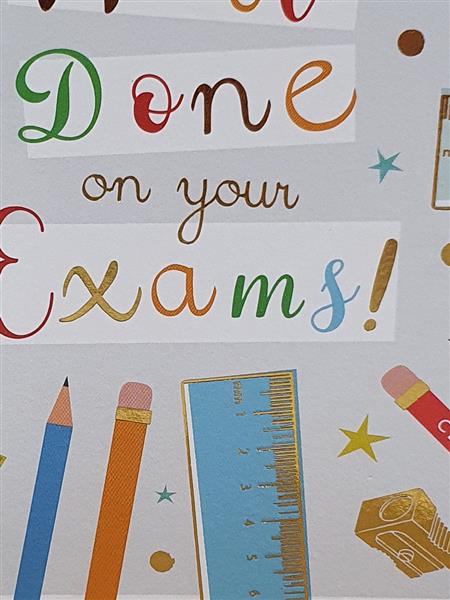 Done
on your
Exams!
1
2
3
4
5
6